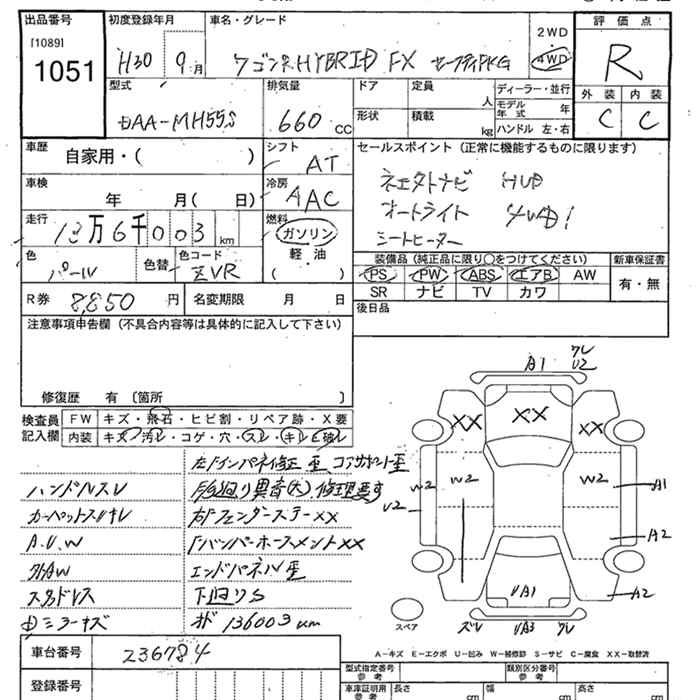 出品番号
[1089]
1051
初度登録年月
H30 9月
車名・グレード
ワゴンR HYBRID FX セーフティPKG
2WD
4WD
評価点
R
外装 内装
C C
型式
DAA-MH55S
排気量
660 cc
ドア
形状
定員
人
積載
kg
ディーラー・並行
モデル年式 年
ハンドル 左・右
車歴
自家用・( )
シフト
AT
セールスポイント (正常に機能するものに限ります)
車検
年 月( 日)
冷房
AAC
オートライト
シートヒーター
走行
13万6千003 km
燃料
ガソリン
軽・油
( )
色
パール
色替
色コード
ZVR
装備品 (純正品に限り○をつけてください)
PS PW ABS エアB AW
SR ナビ TV カワ
新車保証書
有・無
R券 8,850 円
名変期限 月 日
後日品
注意事項申告欄 (不具合内容等は具体的に記入して下さい)
修復歴 有 〔箇所 〕
検査員記入欄
FW キズ・飛石・ヒビ割・リペア跡・X要
内装 キズ・汚レ・コゲ・穴・スレ・キレ・破レ
ハンドルスレ
カーペットスレキレ
A.U.W
外AW
スタッドレス
エンドパネル歪
下廻りS
136003 km
A1
U2
XX
XX
XX
W2
W2
W2
U2
A1
A2
A2
UA1
ズレ
UA3
スペア
A-キズ E-エクボ U-凹み W-補修跡 S-サビ C-腐食 XX-取替済
車台番号 236784
登録番号
型式指定番号 参考
類別区分番号 参考
車庫証明用 参考
長さ cm
幅 cm
高さ cm